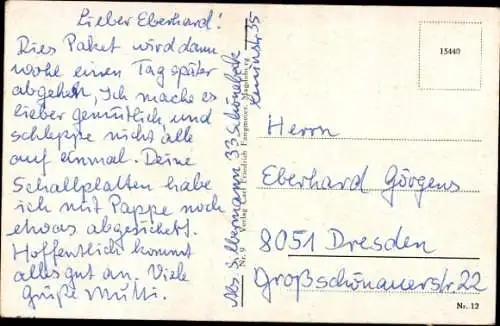 Lieber Eberhard!
Dies Paket wird dann
wohl einen Tag später
abgehen, Ich mache es
lieber gemütlich, und
schleppe nicht alle
auf einmal. Deine
Schallplatten habe
ich mit Pappe noch
etwas abgesichert.
Hoffentlich kommt
alles gut an. Viele
Grüße Mutti.
Abs. Silbermann 33 Schönebeck
Leninstr 35
Nr. 9 Verlag Carl Friedrich Fangmeier, Magdeburg
15440
Herrn
Eberhard Görgens
8051 Dresden
Großschönauerstr. 22
Nr. 12